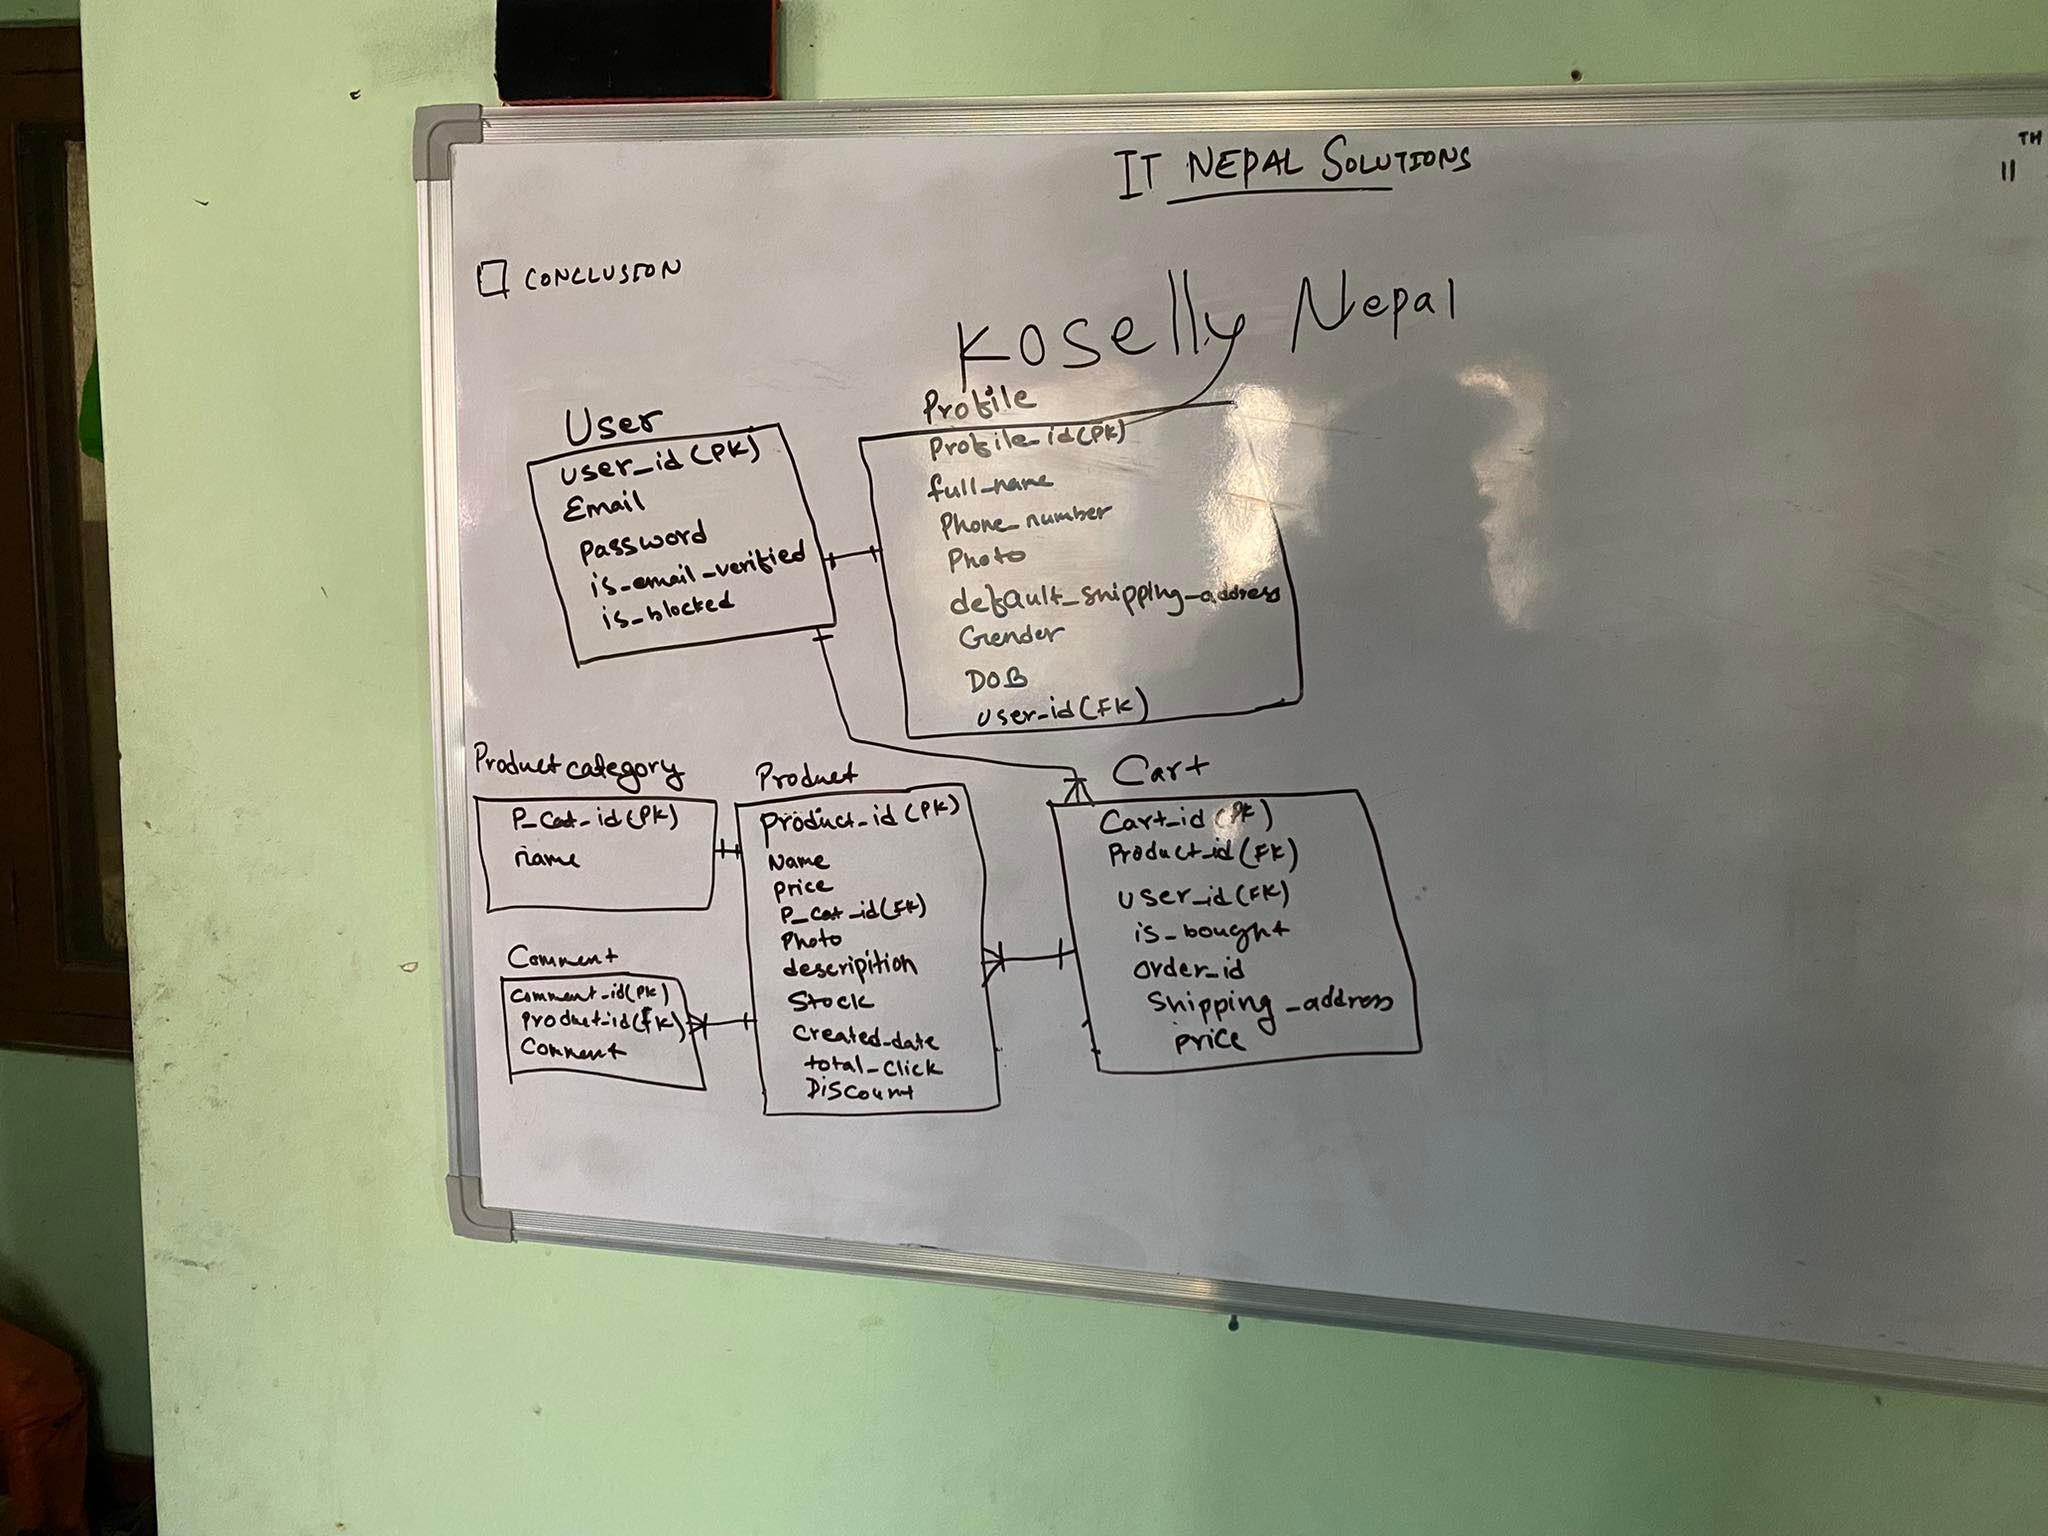 IT NEPAL SOLUTIONS
TH
11
CONCLUSION
Koselly Nepal
User
user_id (PK)
Email
password
is_email_verified
is_blocked
Profile
Profile_id (PK)
full_name
Phone_number
Photo
default_shipping_address
Gender
DOB
user_id (FK)
Product category
P_Cat_id (PK)
name
Product
product_id (PK)
Name
price
P_Cat_id (FK)
Photo
descripition
Stock
created_date
total_click
Discount
Cart
Cart_id (PK)
Product_id (FK)
user_id (FK)
is_bought
order_id
Shipping_address
price
Comment
comment_id (PK)
product_id (FK)
Comment